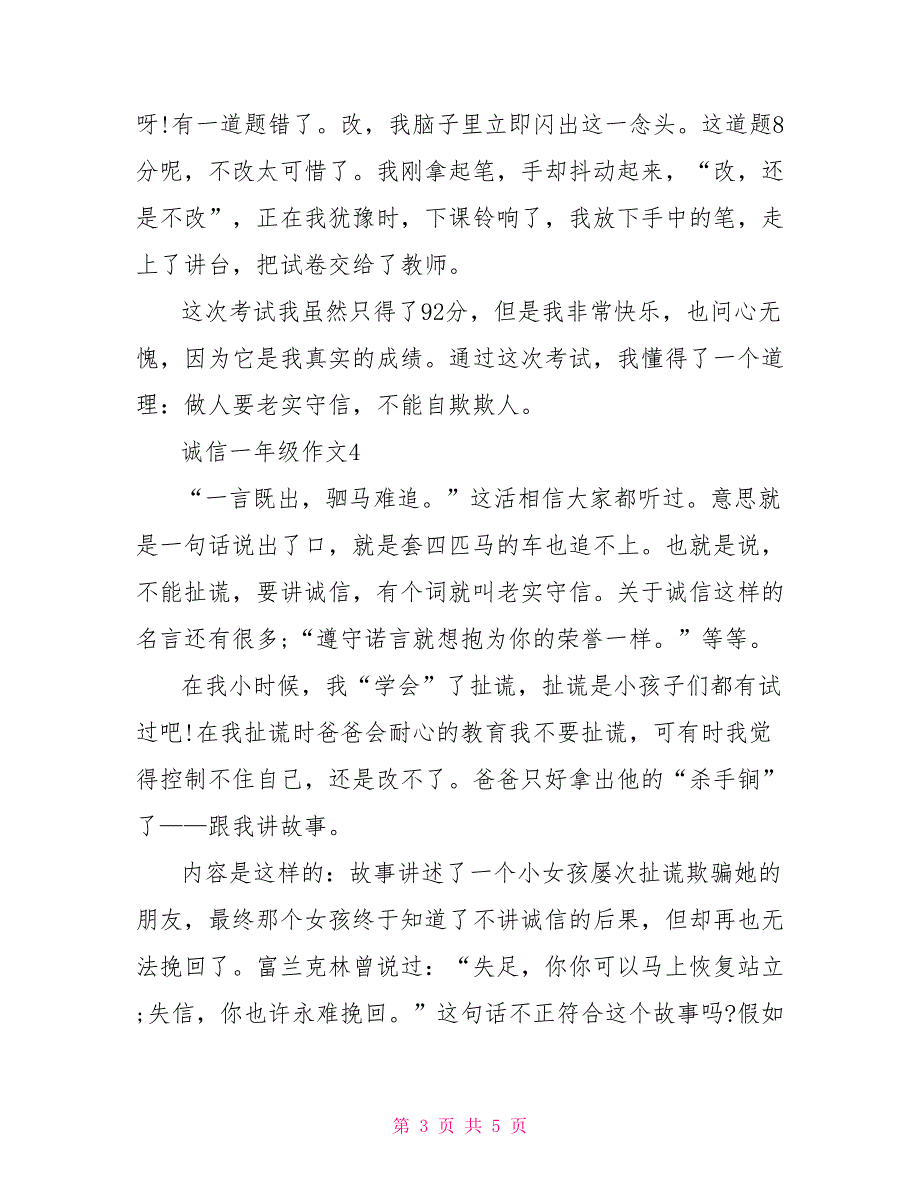 呀!有一道题错了。改，我脑子里立即闪出这一念头。这道题8
分呢，不改太可惜了。我刚拿起笔，手却抖动起来，“改，还
是不改”，正在我犹豫时，下课铃响了，我放下手中的笔，走
上了讲台，把试卷交给了教师。
这次考试我虽然只得了92分，但是我非常快乐，也问心无
愧，因为它是我真实的成绩。通过这次考试，我懂得了一个道
理：做人要老实守信，不能自欺欺人。
诚信一年级作文4
“一言既出，驷马难追。”这活相信大家都听过。意思就
是一句话说出了口，就是套四匹马的车也追不上。也就是说，
不能扯谎，要讲诚信，有个词就叫老实守信。关于诚信这样的
名言还有很多;“遵守诺言就想抱为你的荣誉一样。”等等。
在我小时候，我“学会”了扯谎，扯谎是小孩子们都有试
过吧!在我扯谎时爸爸会耐心的教育我不要扯谎，可有时我觉
得控制不住自己，还是改不了。爸爸只好拿出他的“杀手锏”
了——跟我讲故事。
内容是这样的：故事讲述了一个小女孩屡次扯谎欺骗她的
朋友，最终那个女孩终于知道了不讲诚信的后果，但却再也无
法挽回了。富兰克林曾说过：“失足，你你可以马上恢复站立
;失信，你也许永难挽回。”这句话不正符合这个故事吗?假如
第 3 页 共 5 页